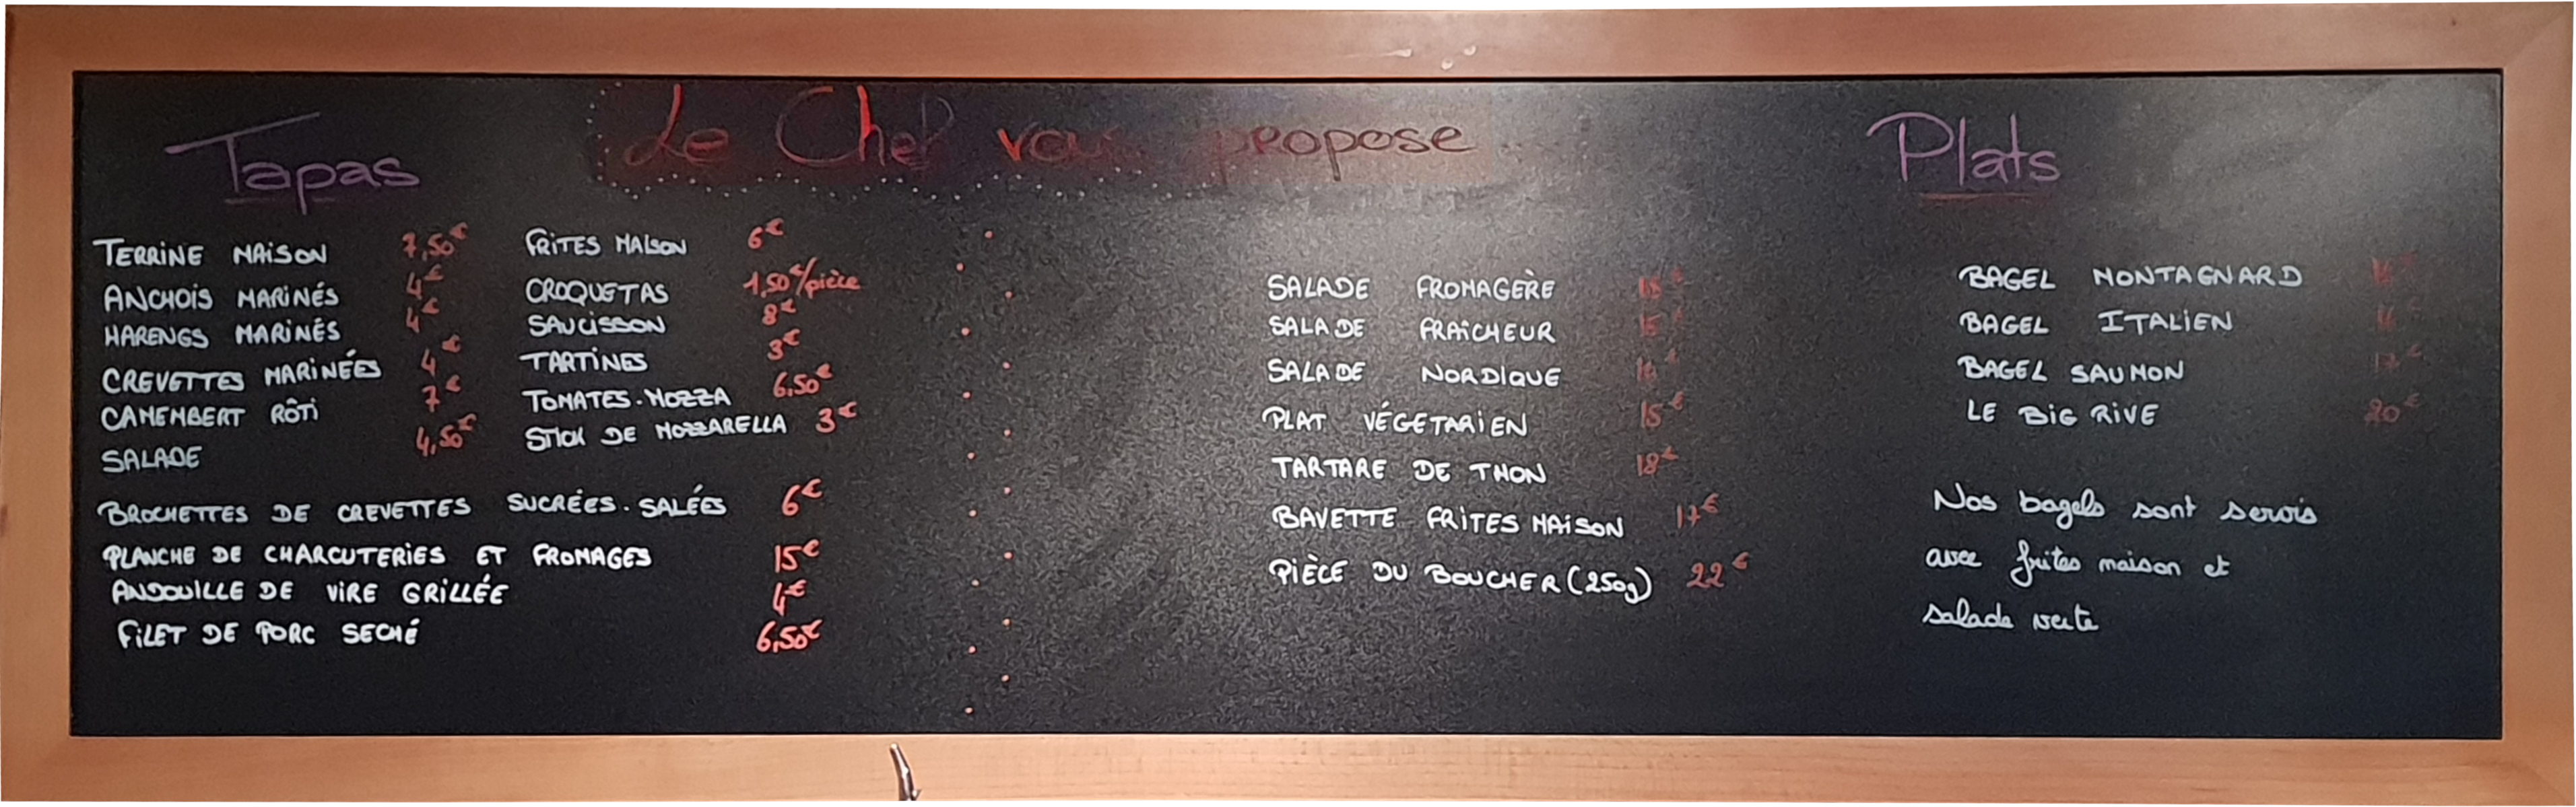 Le Chef vous propose
Tapas
TERRINE MAISON 7,50€
ANCHOIS MARINÉS 4€
HARENGS MARINÉS 4€
CREVETTES MARINÉES 4€
CAMEMBERT RÔTI 7€
SALADE 4,50€
FRITES MAISON 6€
CROQUETAS 1,50€/pièce
SAUCISSON 8€
TARTINES 3€
TOMATES-MOZZA 6,50€
STICK DE MOZZARELLA 3€
BROCHETTES DE CREVETTES SUCRÉES-SALÉES 6€
PLANCHE DE CHARCUTERIES ET FROMAGES 15€
ANDOUILLE DE VIRE GRILLÉE 4€
FILET DE PORC SECHÉ 6,50€
Plats
SALADE FROMAGÈRE
SALADE FRAÎCHEUR
SALADE NORDIQUE
PLAT VÉGETARIEN 15€
TARTARE DE THON 18€
BAVETTE FRITES MAISON 17€
PIÈCE DU BOUCHER (250g) 22€
BAGEL MONTAGNARD
BAGEL ITALIEN
BAGEL SAUMON 17€
LE BIG RIVE 20€
Nos bagels sont servis
avec frites maison et
salade verte